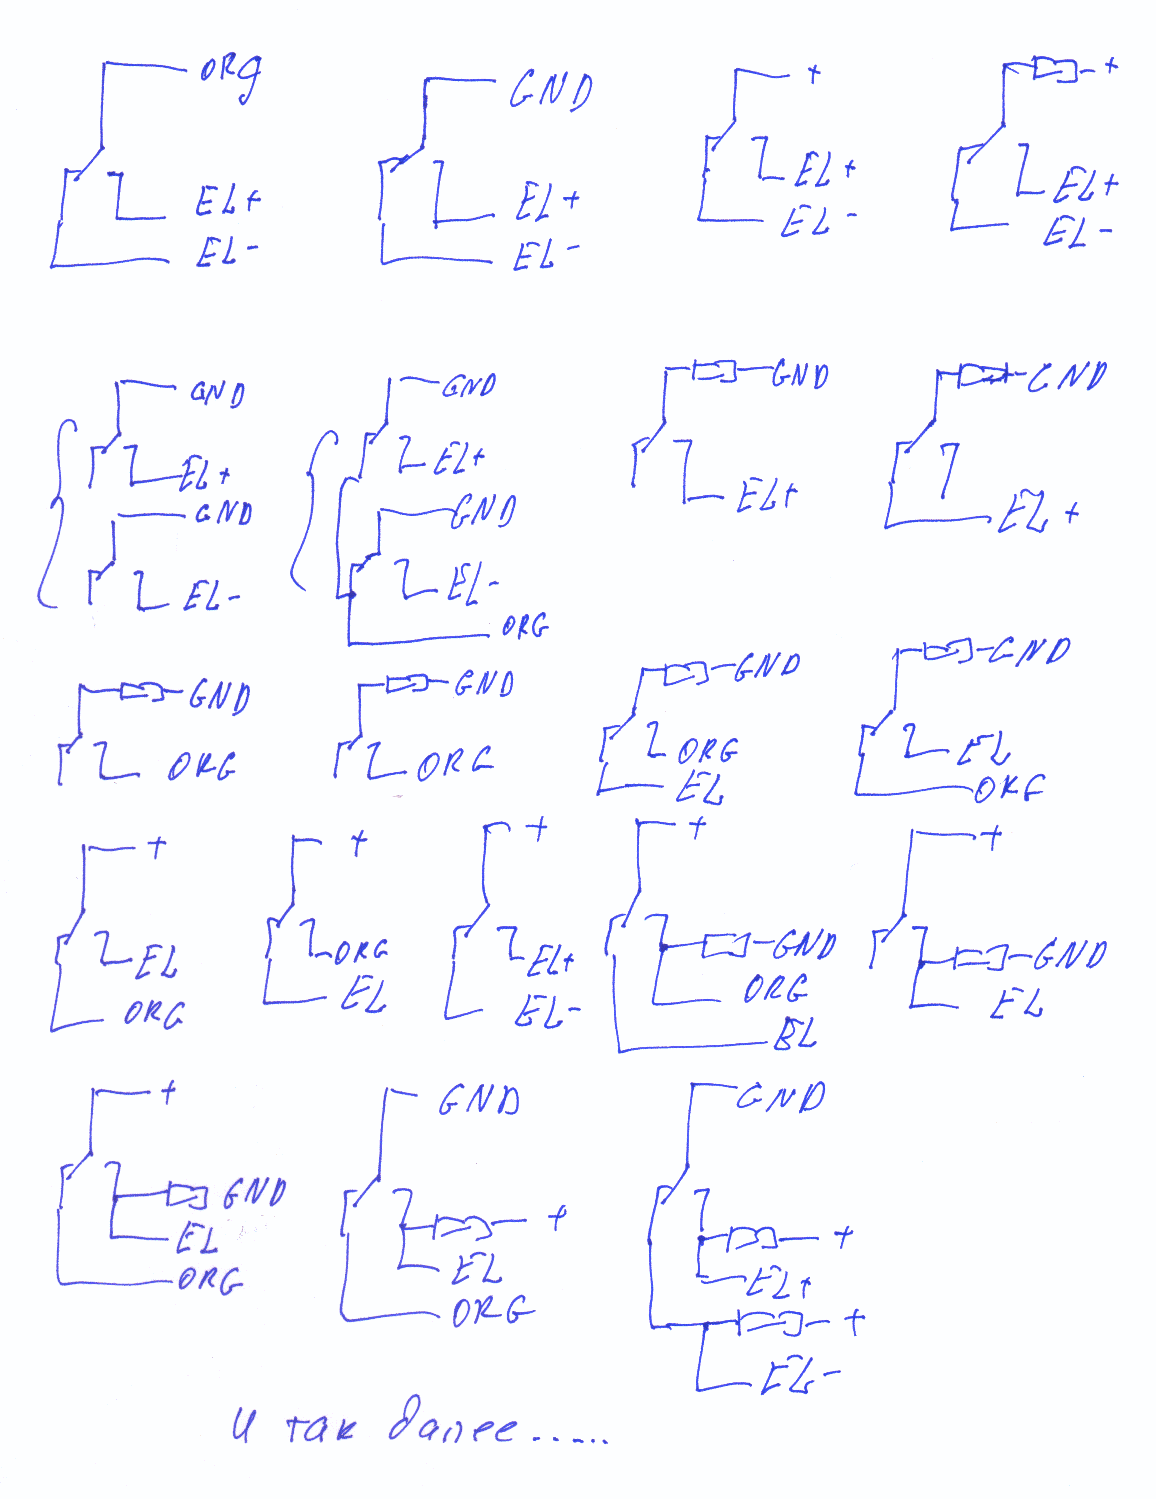 ORG
EL+
EL-
GND
EL+
EL-
+
EL+
EL-
+
EL+
EL-
GND
EL+
GND
EL-
GND
EL+
GND
EL-
ORG
GND
EL+
GND
EL+
GND
ORG
GND
ORG
GND
ORG
EL
GND
EL
ORG
+
EL
ORG
+
ORG
EL
+
EL+
EL-
+
GND
ORG
BL
+
GND
EL
+
GND
EL
ORG
GND
+
EL
ORG
GND
+
EL+
+
EL-
и так далее.....